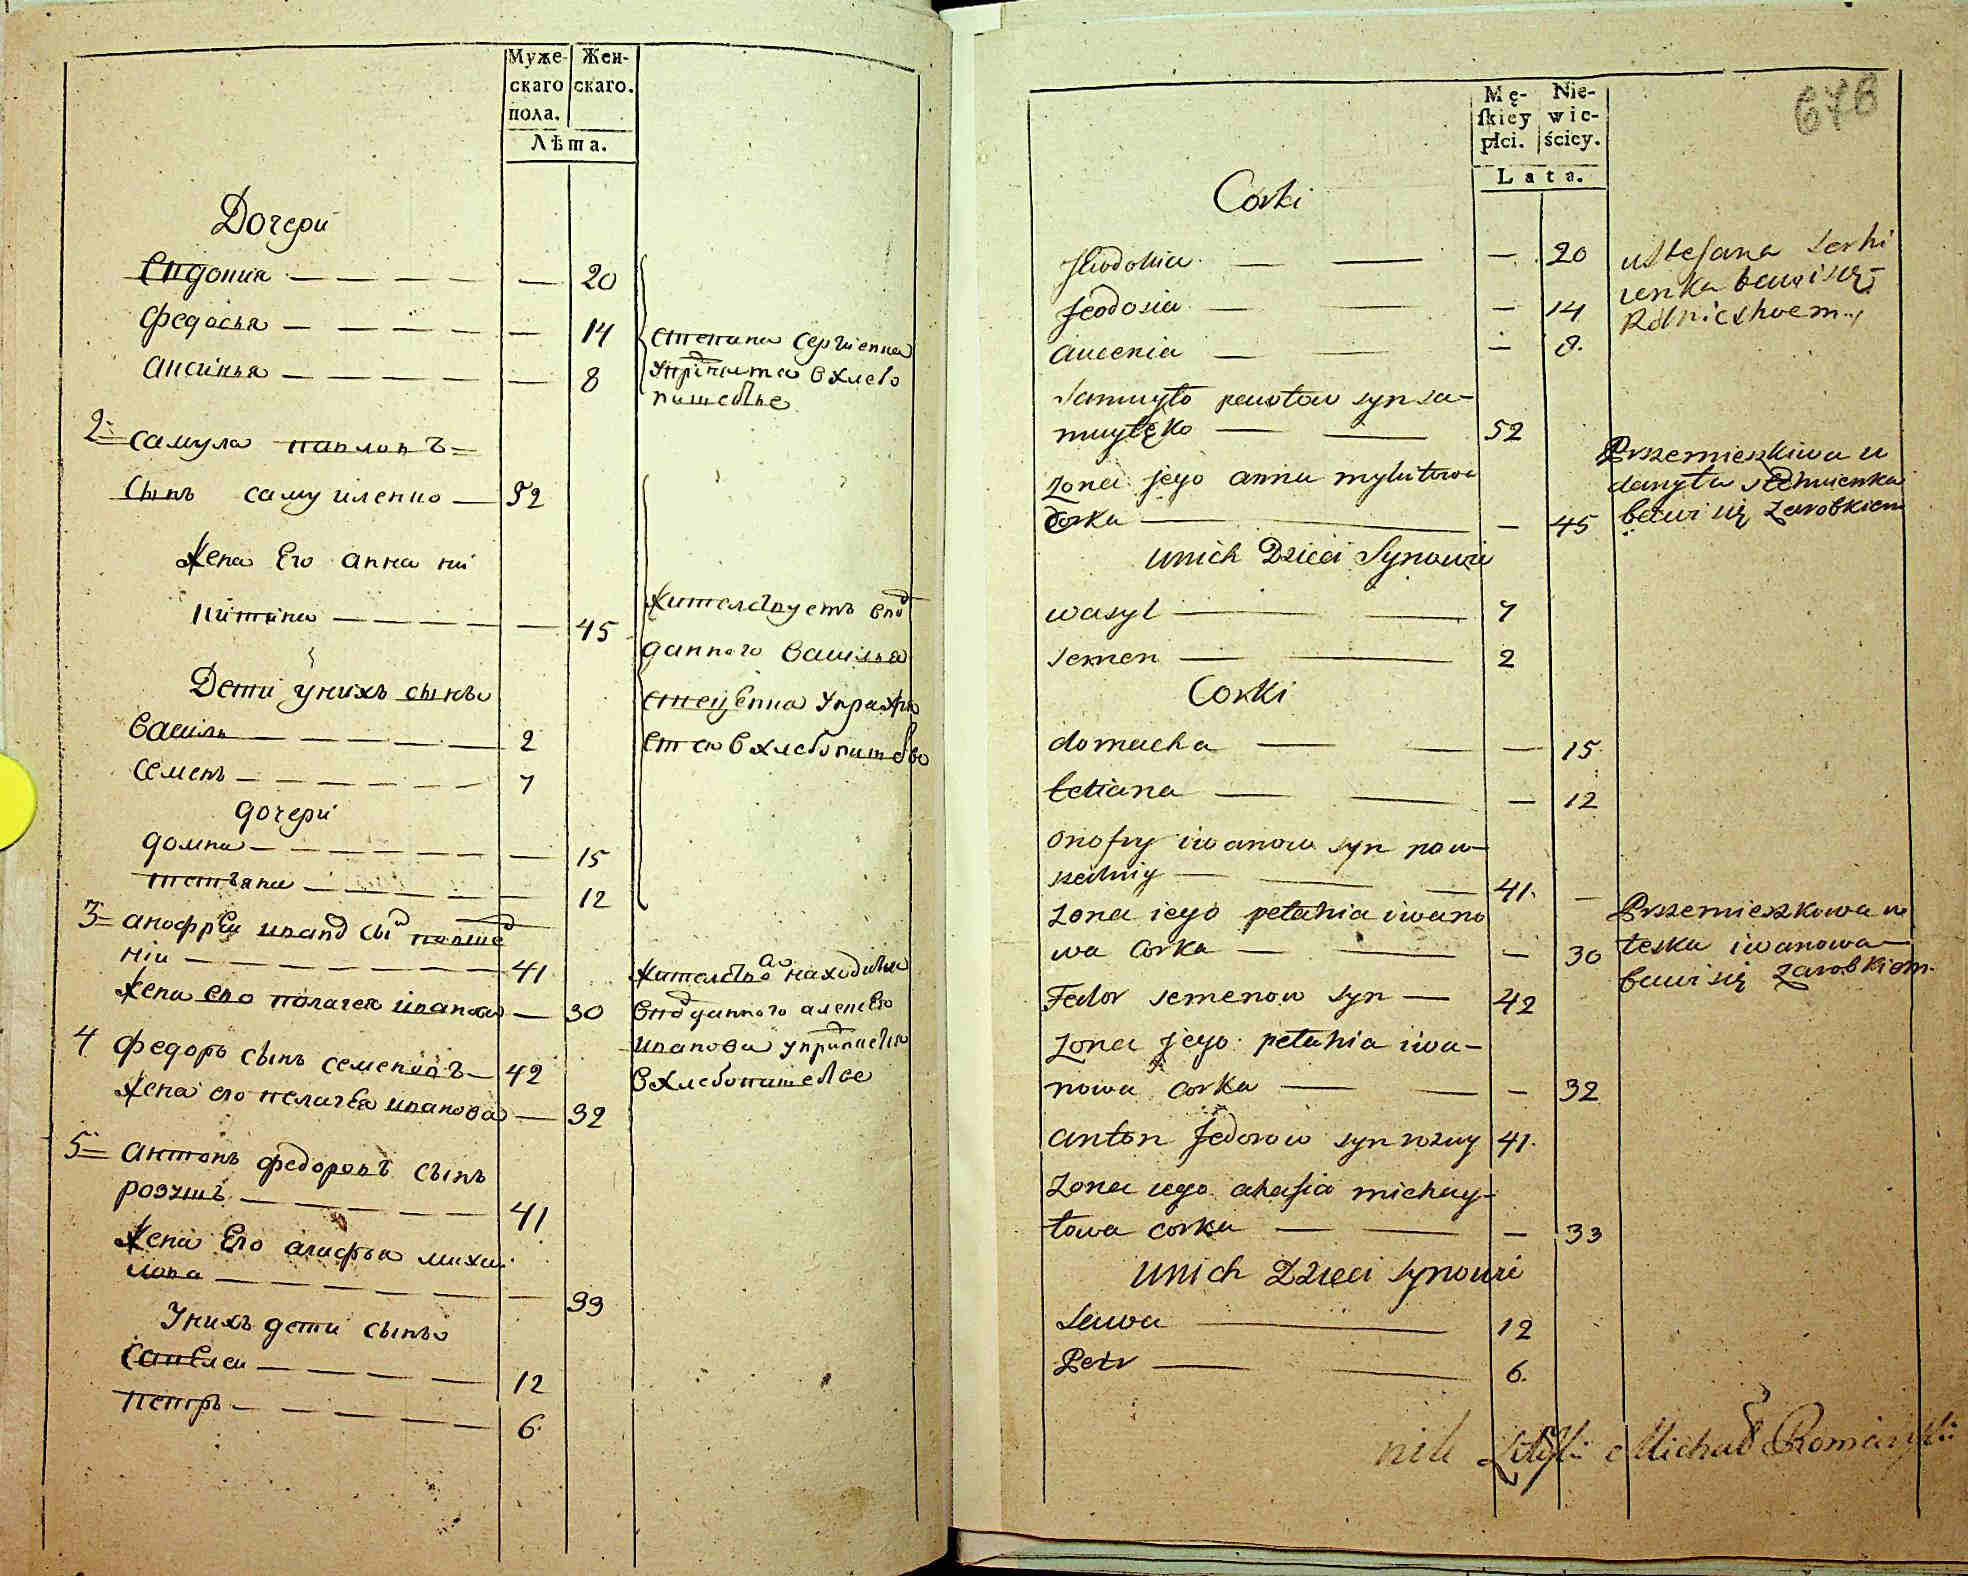 Муже-
скаго
пола.
Жен-
скаго.
Лѣта.
Дочери
Евдокия — — — — — — 20
Федосья — — — — — — 14
Аксинья — — — — — — 8
Степана Сергиенка
упражняится в хлебо
пашестве
2 = Самула Павловъ =
Сынъ Самуиленко — 52
Жена Его анна ни
китина — — — — — — 45
Дети унихъ сынъы
Василь — — — — — 2
Семенъ — — — — — 7
дочери
домна — — — — — — 15
татьяна — — — — — — 12
Жителствуетъ в под
данного Василья
Стеценка упражня
ется в хлебопашество
3 = анофрей Иванов сынъ
ній — — — — — — 41
Жена его полагея иванова — 30
Жителство находится
в подданного алексея
иванова упражнается
в хлебопашестве
4 Федоръ сынъ семеновъ — 42
Жена его пелагея иванова — 32
5 = Антонъ федоровъ сынъ
розумъ — — — — — 41
Жена Его агафья михаи
лова — — — — — — 33
Унихъ дети сынъы
Савелей — — — — — 12
Петръ — — — — — 6.
Mę-
ſkiey
płci.
Nie-
wie-
ściey.
Lata.
676
Corki
Jewdokia — — — — 20
feodosia — — — 14
auxenia — — — 8.
u Stefana Serhi
ienka bawi się
Rolnictwem
Samuyło pawłow syn sa-
muyłęko — — 52
Zona jego anna mykitowa
Corka — — 45
Przemieszkiwa u
danyła
bawi się Zarobkiem
unich Dzieci Synowie
wasyl — — 7
semen — — 2
Corki
domacha — — — 15
tetiana — — — 12
onofry iwanow syn pow-
— — — 41. —
Zona iego petahia iwano
wa Corka — — — 30
Przemieszkowa u
leska iwanowa —
bawi się Zarobkiem.
Fedor semenow syn — 42
Zona jego petahia iwa-
nowa corka — — — 32
anton fedorow syn rozuy 41.
Zona iego ahafia michay-
łowa corka — — — 33
unich Dzieci synowie
Sawa — 12
Petr — 6.
Michał